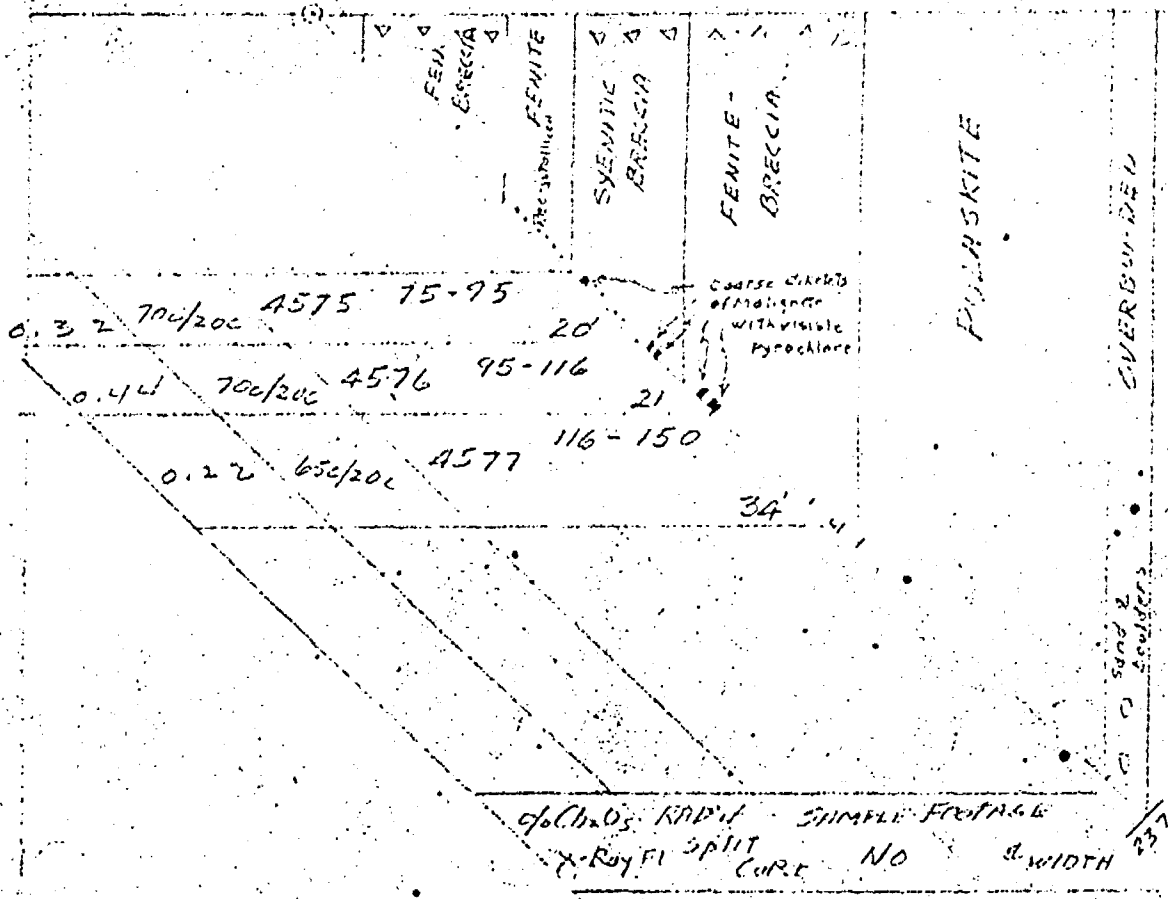 FEN.
BRECCIA
FENITE
Recrystallized
SYENITIC
BRECCIA
FENITE-
BRECCIA
PULASKITE
OVERBURDEN
Coarse dikelets
of Malignite
with visible
Pyrochlore
0.32 70c/20c 4575 75-95
20'
0.44 70c/20c 4576 95-116
21
116-150
0.22 65c/20c 4577
34'
Sand &
boulders
% Cb2O5 RAD'Y SAMPLE FOOTAGE
X-Ray Fl Split
Core No & WIDTH
237